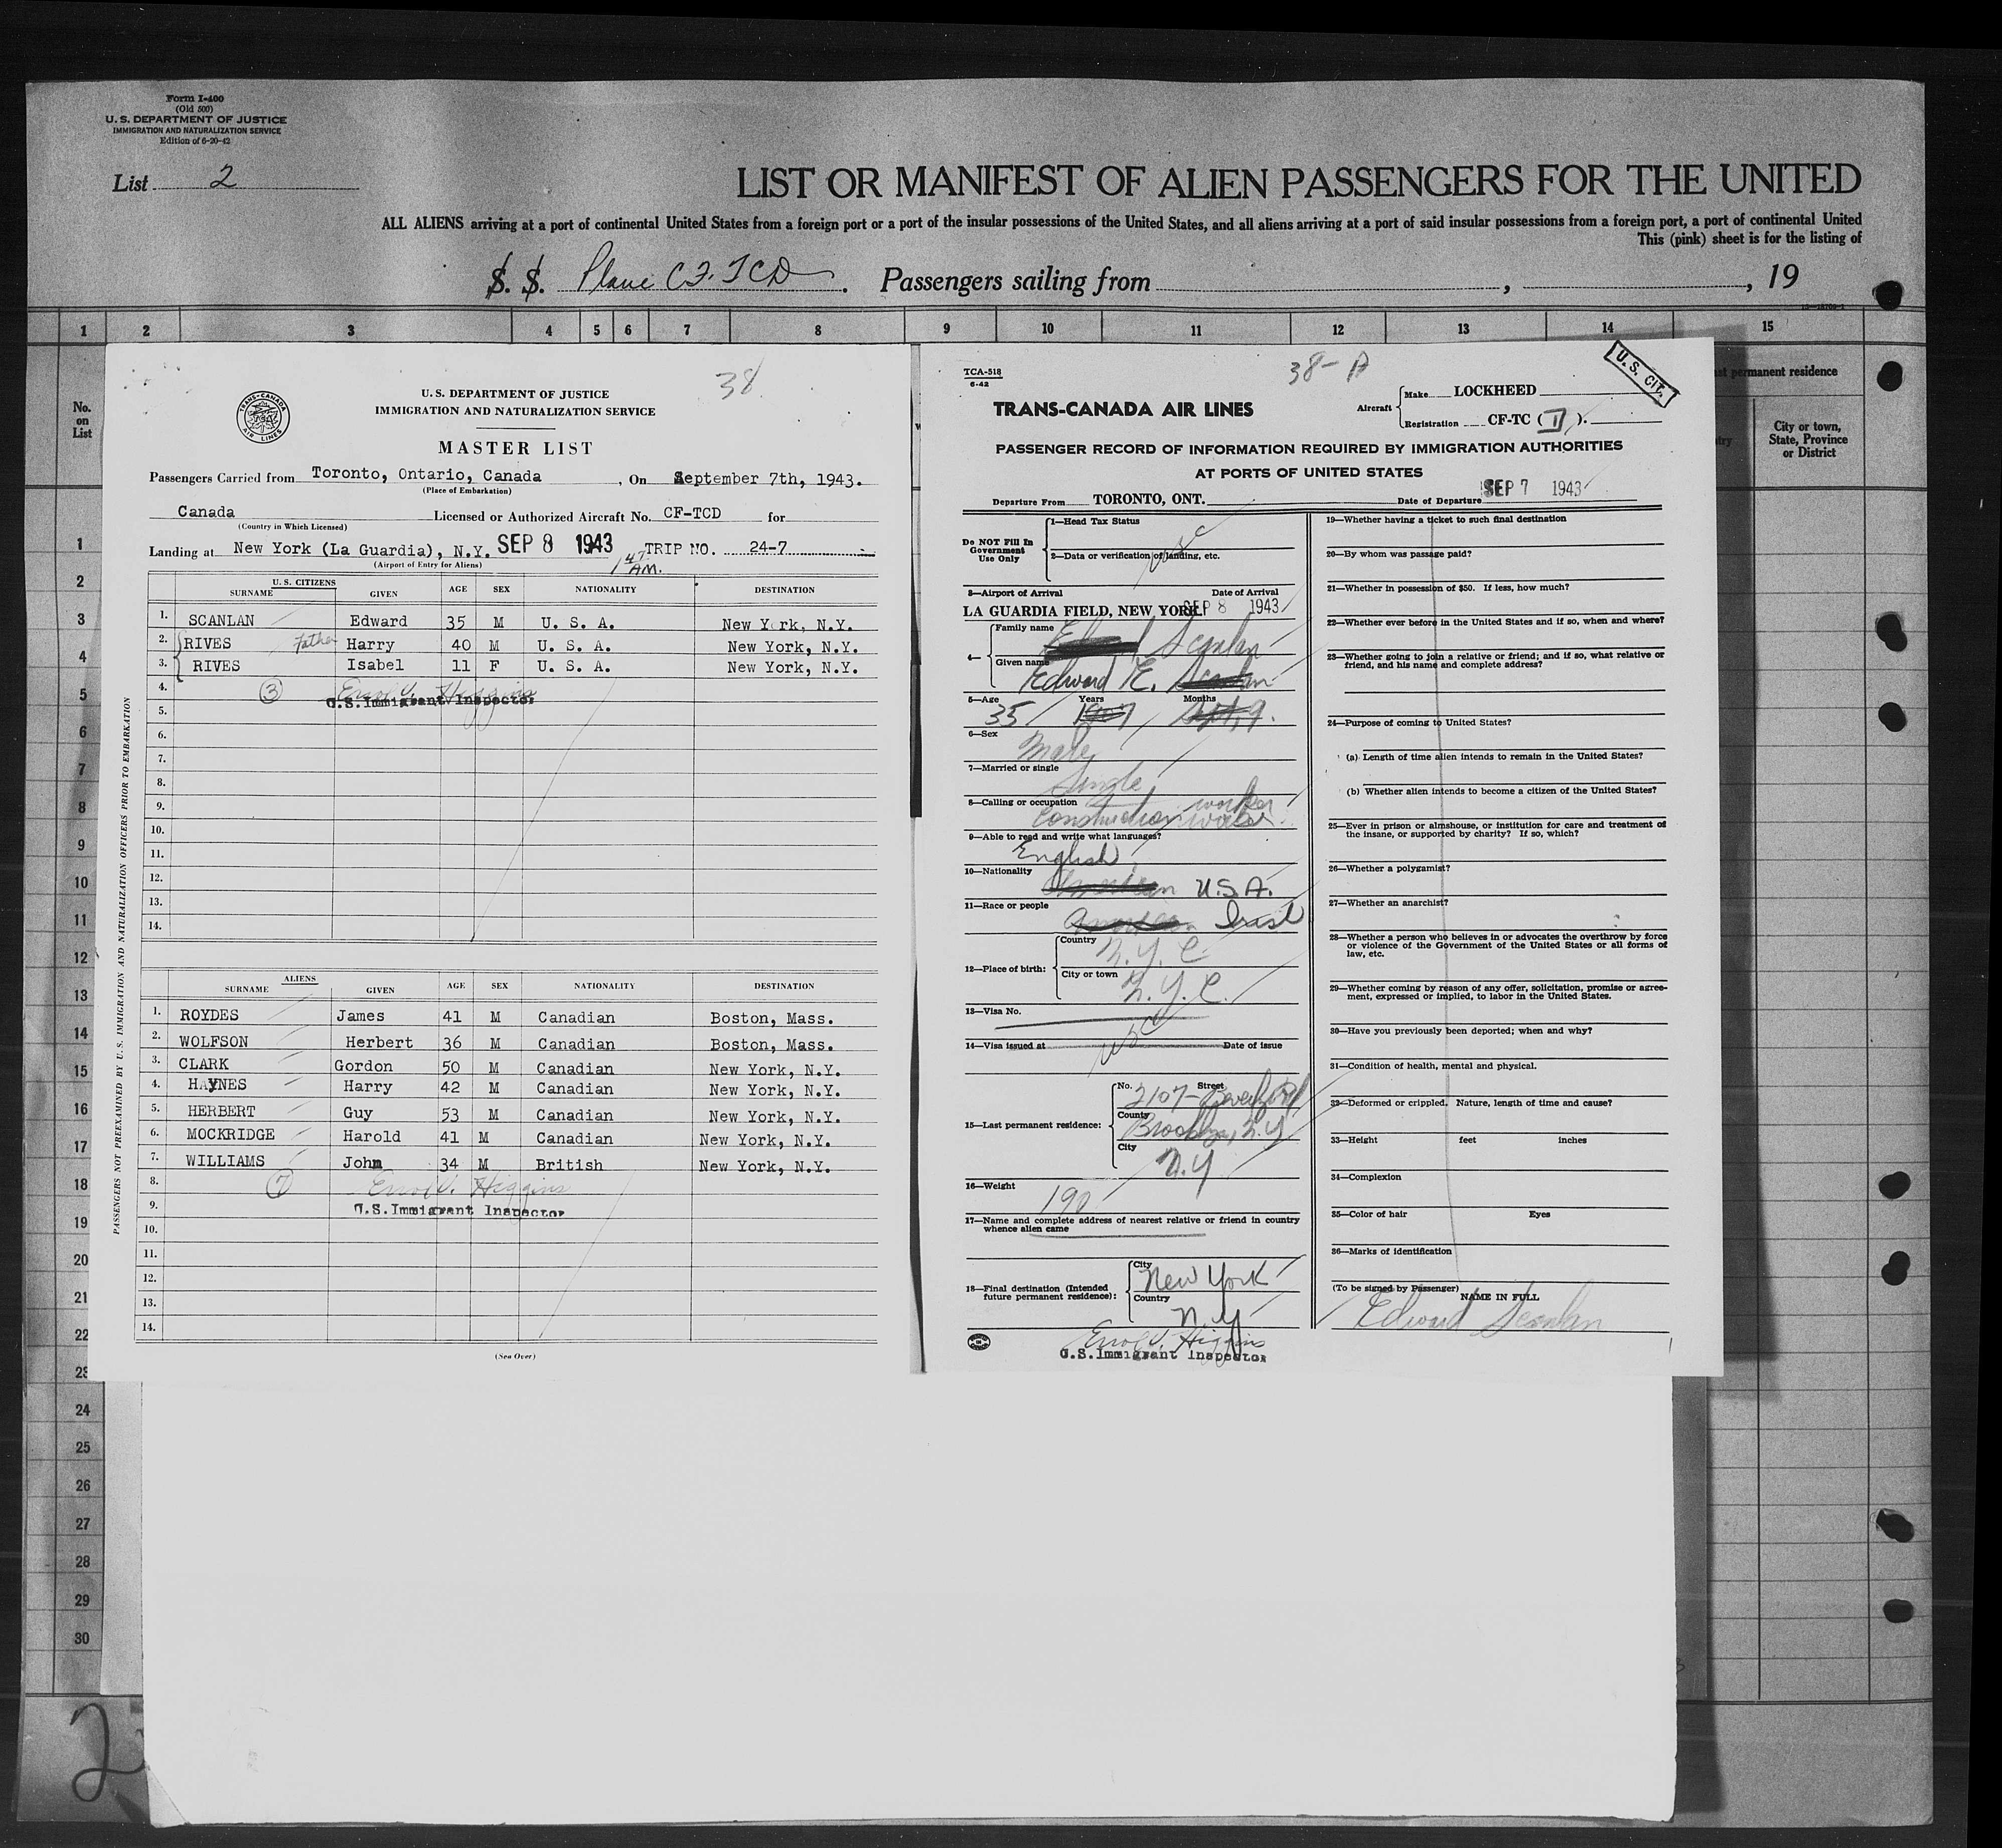 Form I-400
(Old 500)
U. S. DEPARTMENT OF JUSTICE
IMMIGRATION AND NATURALIZATION SERVICE
Edition of 6-20-42
List 2
LIST OR MANIFEST OF ALIEN PASSENGERS FOR THE UNITED
ALL ALIENS arriving at a port of continental United States from a foreign port or a port of the insular possessions of the United States, and all aliens arriving at a port of said insular possessions from a foreign port, a port of continental United
This (pink) sheet is for the listing of
S. S. Plane CF. TCD. Passengers sailing from , , 19
1 2 3 4 5 6 7 8 9 10 11 12 13 14 15
No. on List
permanent residence
City or town, State, Province or District
1
2
3
4
5
6
7
8
9
10
11
12
13
14
15
16
17
18
19
20
21
22
23
24
25
26
27
28
29
30
2
38
TRANS-CANADA AIR LINES
U. S. DEPARTMENT OF JUSTICE
IMMIGRATION AND NATURALIZATION SERVICE
MASTER LIST
Passengers Carried from Toronto, Ontario, Canada, On September 7th, 1943.
(Place of Embarkation)
Canada Licensed or Authorized Aircraft No. CF-TCD for
(Country in Which Licensed)
Landing at New York (La Guardia), N.Y. SEP 8 1943 TRIP NO. 24-7
(Airport of Entry for Aliens) 1 47 AM.
U. S. CITIZENS
SURNAME GIVEN AGE SEX NATIONALITY DESTINATION
1. SCANLAN Edward 35 M U. S. A. New York, N.Y.
2. RIVES Father Harry 40 M U. S. A. New York, N.Y.
3. RIVES Isabel 11 F U. S. A. New York, N.Y.
4. 3 Errol V. Higgins
U.S.Immigrant Inspector
5.
6.
7.
8.
9.
10.
11.
12.
13.
14.
ALIENS
SURNAME GIVEN AGE SEX NATIONALITY DESTINATION
1. ROYDES James 41 M Canadian Boston, Mass.
2. WOLFSON Herbert 36 M Canadian Boston, Mass.
3. CLARK Gordon 50 M Canadian New York, N.Y.
4. HAYNES Harry 42 M Canadian New York, N.Y.
5. HERBERT Guy 53 M Canadian New York, N.Y.
6. MOCKRIDGE Harold 41 M Canadian New York, N.Y.
7. WILLIAMS John 34 M British New York, N.Y.
8. 7 Errol V. Higgins
9. U.S.Immigrant Inspector
10.
11.
12.
13.
14.
(See Over)
PASSENGERS NOT PREEXAMINED BY U. S. IMMIGRATION AND NATURALIZATION OFFICERS PRIOR TO EMBARKATION
TCA-518
6-42
38-A
U. S. CIT.
TRANS-CANADA AIR LINES
Aircraft Make LOCKHEED
Registration CF-TC ( D ).
PASSENGER RECORD OF INFORMATION REQUIRED BY IMMIGRATION AUTHORITIES
AT PORTS OF UNITED STATES
Departure From TORONTO, ONT. Date of Departure SEP 7 1943
Do NOT Fill In Government Use Only
1—Head Tax Status
2—Data or verification of landing, etc.
usc
3—Airport of Arrival Date of Arrival
LA GUARDIA FIELD, NEW YORK. SEP 8 1943
4— Family name Scanlan
Given name Edward E.
5—Age Years Months
35
6—Sex
Male
7—Married or single
Single
8—Calling or occupation
Construction worker
9—Able to read and write what languages?
English
10—Nationality
U.S.A.
11—Race or people
Irish
12—Place of birth: Country N.Y.C
City or town N.Y.C.
13—Visa No.
usc
14—Visa issued at Date of issue
15—Last permanent residence: No. Street 2107-
County Brooklyn, N.Y
City N.Y
16—Weight
190
17—Name and complete address of nearest relative or friend in country whence alien came
18—Final destination (Intended future permanent residence): City New York
Country N.Y
Errol V. Higgins
U.S.Immigrant Inspector
19—Whether having a ticket to such final destination
20—By whom was passage paid?
21—Whether in possession of $50. If less, how much?
22—Whether ever before in the United States and if so, when and where?
23—Whether going to join a relative or friend; and if so, what relative or
friend, and his name and complete address?
24—Purpose of coming to United States?
(a) Length of time alien intends to remain in the United States?
(b) Whether alien intends to become a citizen of the United States?
25—Ever in prison or almshouse, or institution for care and treatment of
the insane, or supported by charity? If so, which?
26—Whether a polygamist?
27—Whether an anarchist?
28—Whether a person who believes in or advocates the overthrow by force
or violence of the Government of the United States or all forms of
law, etc.
29—Whether coming by reason of any offer, solicitation, promise or agree-
ment, expressed or implied, to labor in the United States.
30—Have you previously been deported; when and why?
31—Condition of health, mental and physical.
32—Deformed or crippled. Nature, length of time and cause?
33—Height feet inches
34—Complexion
35—Color of hair Eyes
36—Marks of identification
(To be signed by Passenger)
NAME IN FULL
Edward Scanlan